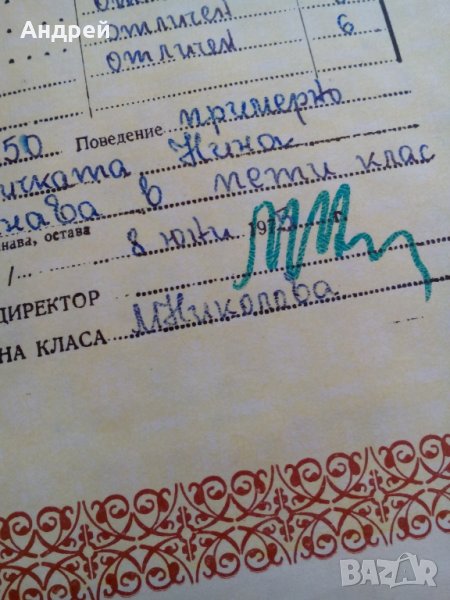 Андрей
отличен
отличен 6
50 Поведение примерно
ичката Нина
нава в пети клас
нава, остава
/ 8 юни 197 г.
ДИРЕКТОР
НА КЛАСА МНиколова
BAZAR